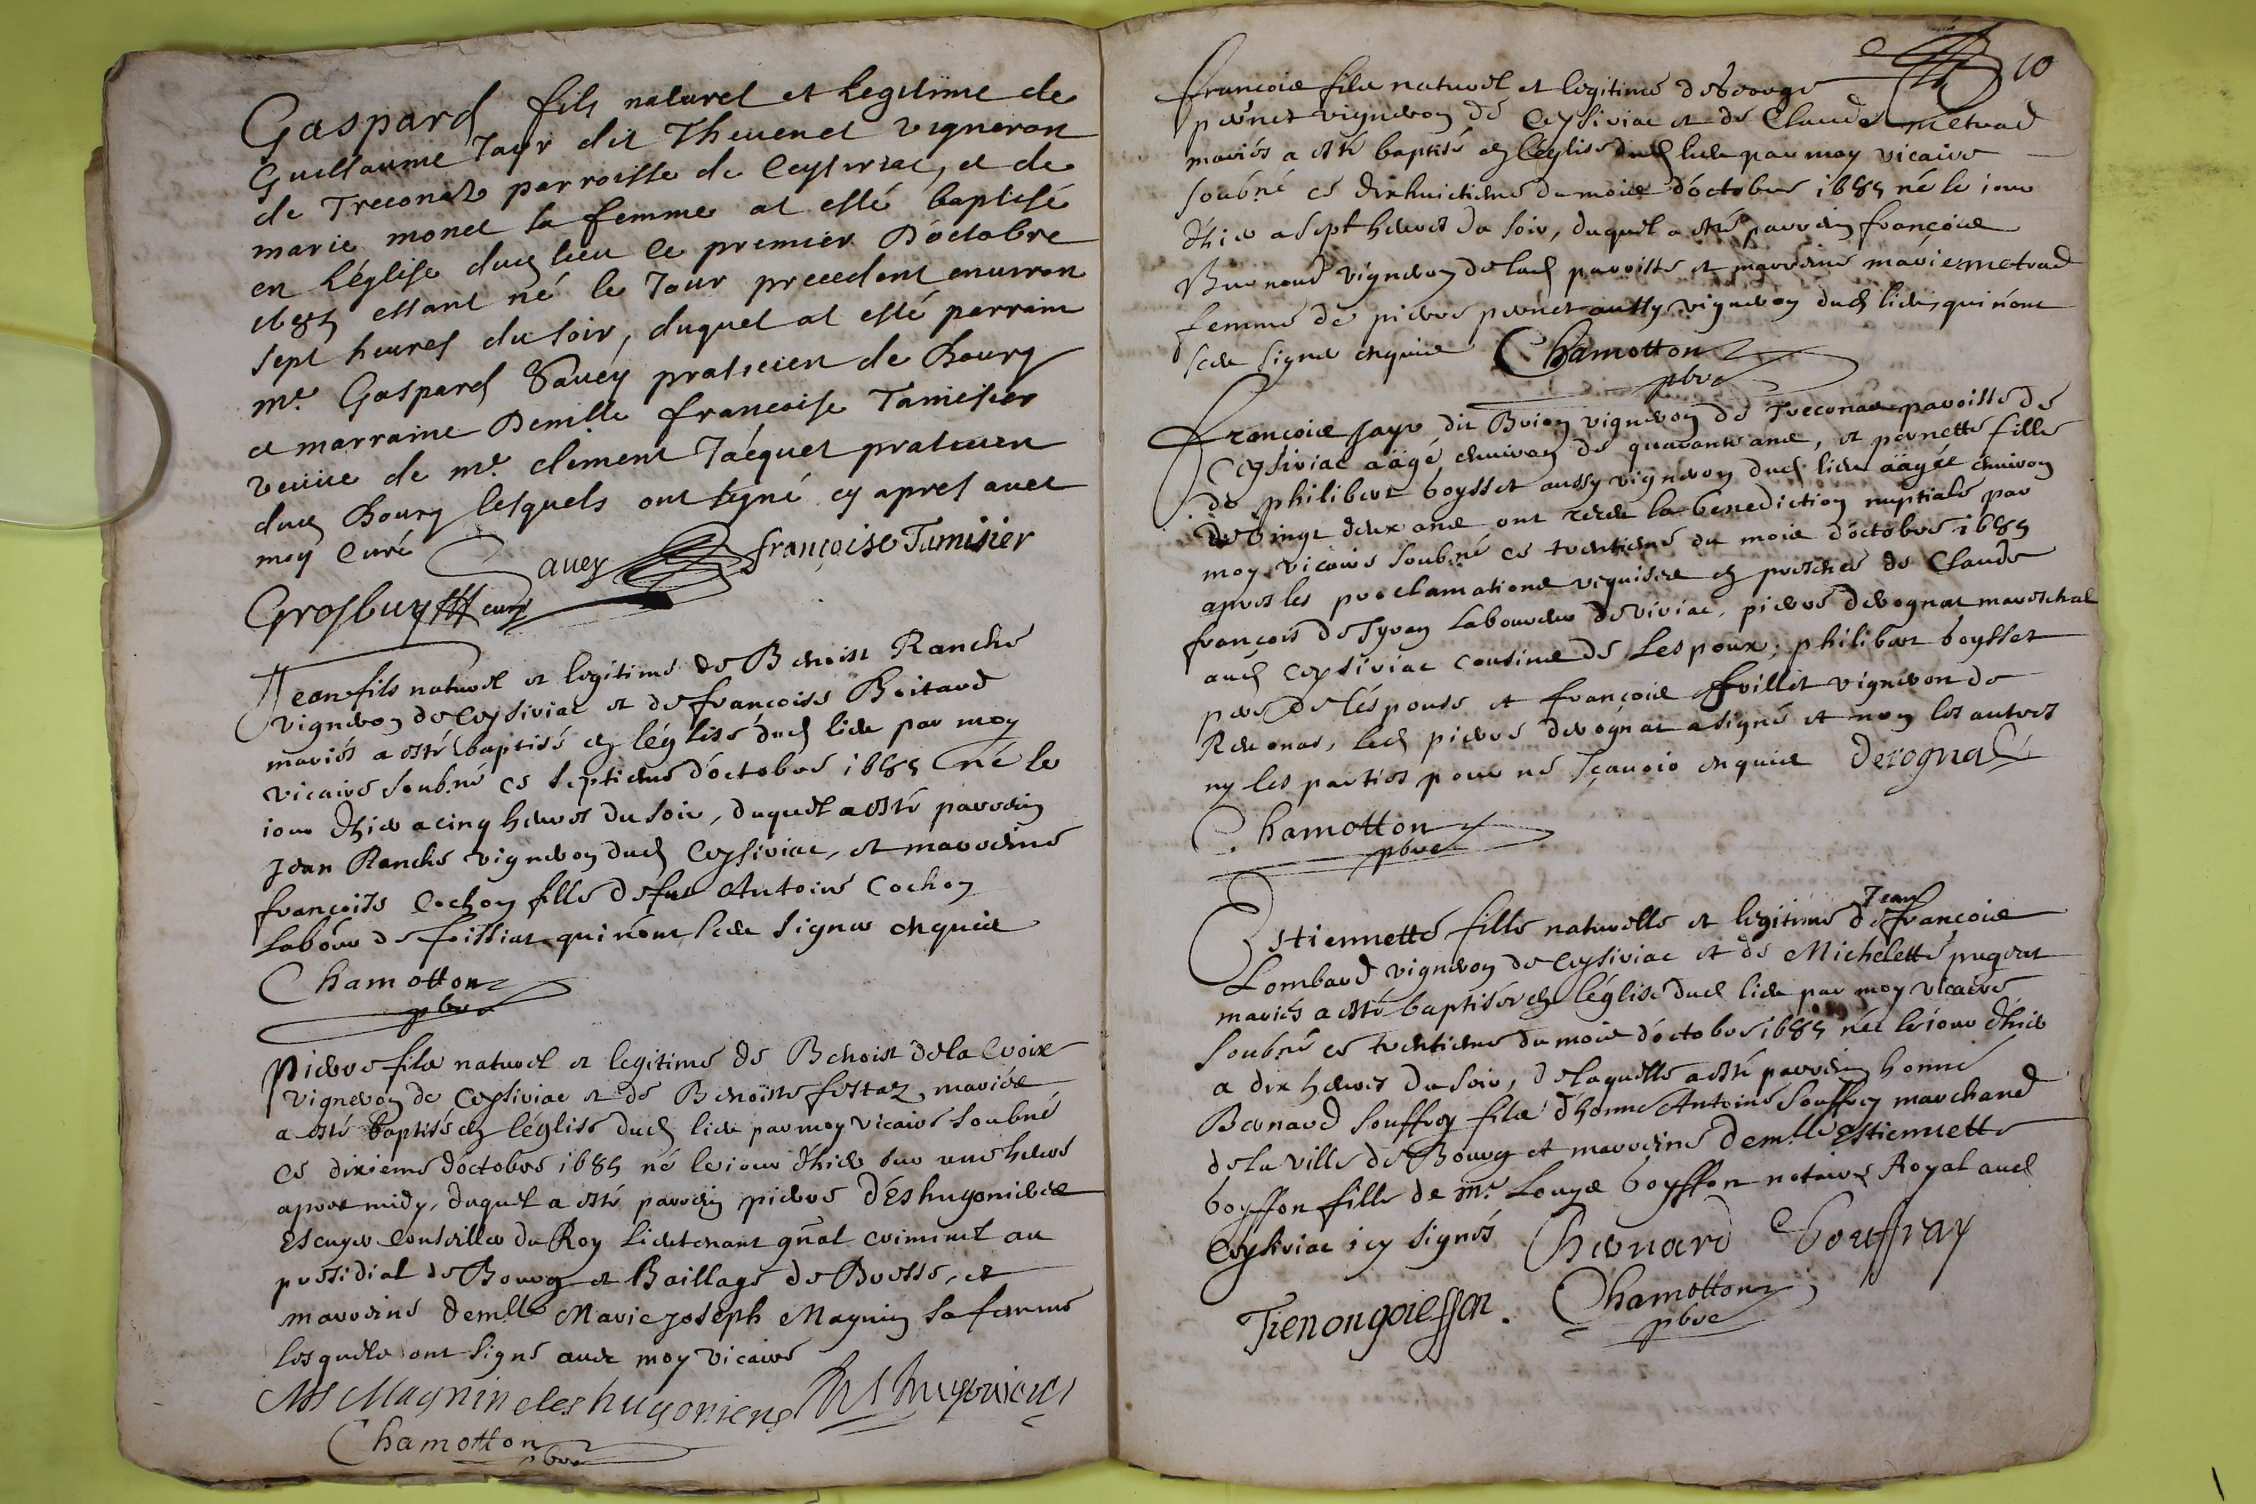 Gaspard fils naturel et legitime de
Guillaume Jayr dit Thevenet vigneron
de Treconaz parroisse de Ceysiriac, et de
marie monet sa femme at esté baptisé
en l'église dud lieu le premier D'octobre
1685 estant né le Jour precedent environ
sept heures du soir, duquel at esté parrain
me. Gaspard Savey praticien de Bourg
et marraine Demlle francoise Tamisier
veuve de me. clement Jacquet praticien
dud Bourg lesquels ont signé cy apres avec
moy Curé
avey françoise Tamisier
Grosbuy curé
Jean fils naturel et legitime de Benoist Ranche
vigneron de Ceysiriac et de françoise Boitard
mariés a esté baptisé en l'église dud lieu par moy
vicaire soubné ce septieme d'octobre 1685 né le
jour d'hier a cinq heures du soir, duquel a esté parrein
Jean Ranche vigneron dud Ceysiriac, et marreine
françoise Cochon fille de feu Antoine Cochon
Labour de froissiat qui n'ont sceu signer enquis
Chamotton
pbre
Pierre fils naturel et legitime de Benoist dela Croix
vigneron de Ceysiriac et de Benoiste festaz mariés
a esté baptisé en l'église dud lieu par moy vicaire soubné
ce dixieme d'octobre 1685 né le jour d'hier sur une heure
apres midy, duquel a esté parrein pierre Deshugonieres
Escuyer Conseiller du Roy Lieutenant gñal criminel au
presidial de Bourg et Baillage de Bresse, et
marreine demlle Marie joseph Magnin sa femme
lesquels ont signé avec moy vicaire
MJ Magnin deshugonieres
Chamotton
pbre
10
françois fils naturel et legitime de George
pernet vigneron de Ceysiriac et de Claude metrad
mariés a esté baptisé en l'église dud lieu par moy vicaire
soubné ce dixhuictieme du mois d'octobre 1685 né le jour
d'hier a sept heures du soir, duquel a esté parrein françois
vigneron de lad paroisse et marreine marie metrad
femme de pierre pernet aussy vigneron dud lieu, qui n'ont
sceu signer enquis Chamotton
pbre
François Jayr dit Brion vigneron de Treconas paroisse de
Ceysiriac aagé environ de quarante ans, et pernette fille
de philibert boysset aussy vigneron dud lieu aagée environ
de vingt deux ans ont receu la benediction nuptiale par
moy vicaire soubné ce trentieme du mois d'octobre 1685
apres les proclamations requises en presence de Claude
françois de Tyvan Laboureur de viriac, pierre derognat mareschal
aud Ceysiriac cousins de Lespoux, philibert boysset
pere de l'espouse et françois frillet vigneron de
Revonas, led pierre derognat a signé et non les autres
ny les parties pour ne sçavoir enquis Derognat
Chamotton
pbre
Jean
Estiennette fille naturelle et legitime de françois
Lombard vigneron de Ceysiriac et de Michelette pugeat
mariés a esté baptisée en l'église dud lieu par moy vicaire
soubné ce trentieme du mois d'octobre 1685 née le jour d'hier
a dix heures du soir, de laquelle a esté parrein honné
Bernard souffrey fils d'honné Antoine souffrey marchand
de la ville de Bourg et marreine demlle Estiennette
boysson fille de me. Louys boysson notaire Royal aud
Ceysiriac icy signés Bernard Souffray
Chamotton
pbre